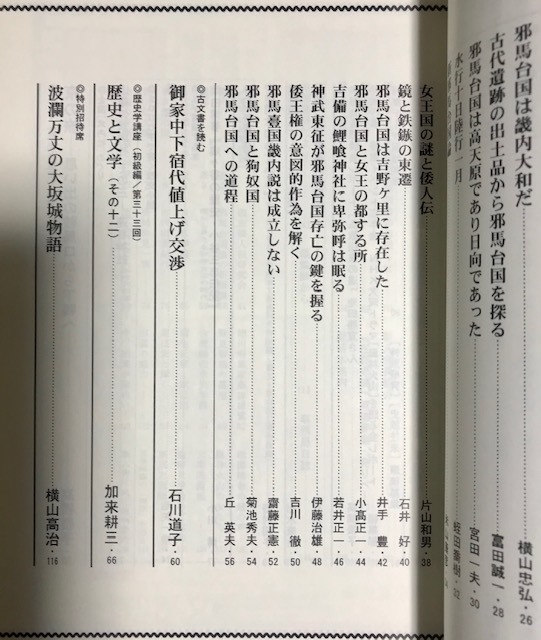 邪馬台国は畿内大和だ 横山忠弘・26
古代遺跡の出土品から邪馬台国を探る 富田誠一・28
邪馬台国は高天原であり日向であった 宮田一夫・30
水行十日陸行一月 蛭田喬樹・32
女王国の謎と倭人伝 片山和男・38
鏡と鉄鏃の東遷 石井 好・40
邪馬台国は吉野ヶ里に存在した 井手 豊・42
邪馬台国と女王の都する所 小髙正一・44
吉備の鯉喰神社に卑弥呼は眠る 若井正一・46
神武東征が邪馬台国存亡の鍵を握る 伊藤治雄・48
倭王権の意図的作為を解く 吉川 徹・50
邪馬臺国畿内説は成立しない 齋藤正憲・52
邪馬台国と狗奴国 菊池秀夫・54
邪馬台国への道程 丘 英夫・56
◎古文書を読む
御家中下宿代値上げ交渉 石川道子・60
◎歴史学講座（初級編／第三十三回）
歴史と文学（その十二） 加来耕三・66
◎特別招待席
波瀾万丈の大坂城物語 横山高治・116